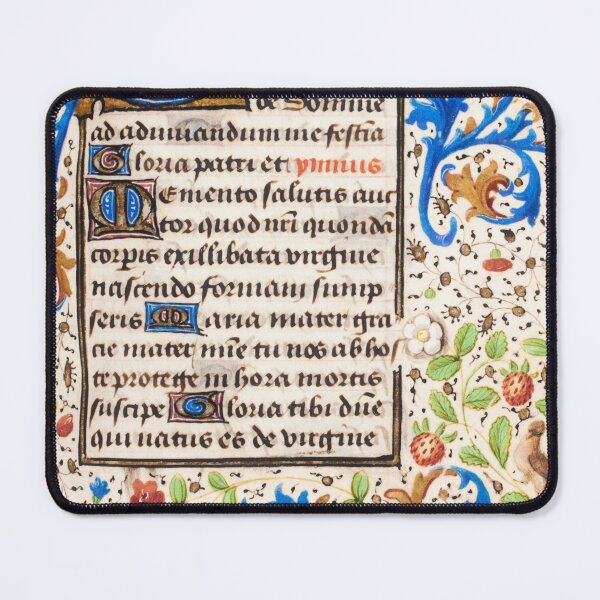 de Domine
ad adiuuandum me festia
Gloria patri et ymnus
Memento salutis auc
tor quod nri quonda
corpis exillibata virgine
nascendo formam sump
seris Maria mater gra
cie mater mie tu nos ab ho
te protege in hora mortis
suscipe Gloria tibi dne
qui natus es de virgine